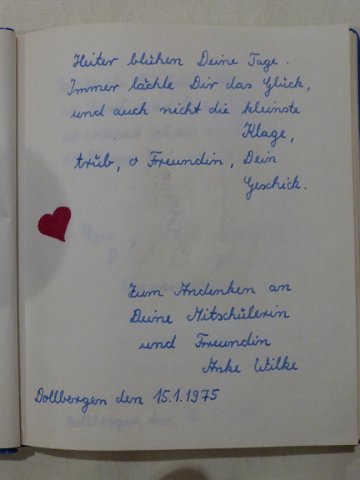 Heiter blühen Deine Tage.
Immer lächle Dir das Glück,
und auch nicht die kleinste
Klage,
trüb, o Freundin, Dein
Geschick.
Zum Andenken an
Deine Mitschülerin
und Freundin
Anke Wilke
Dollbergen den 15.1.1975